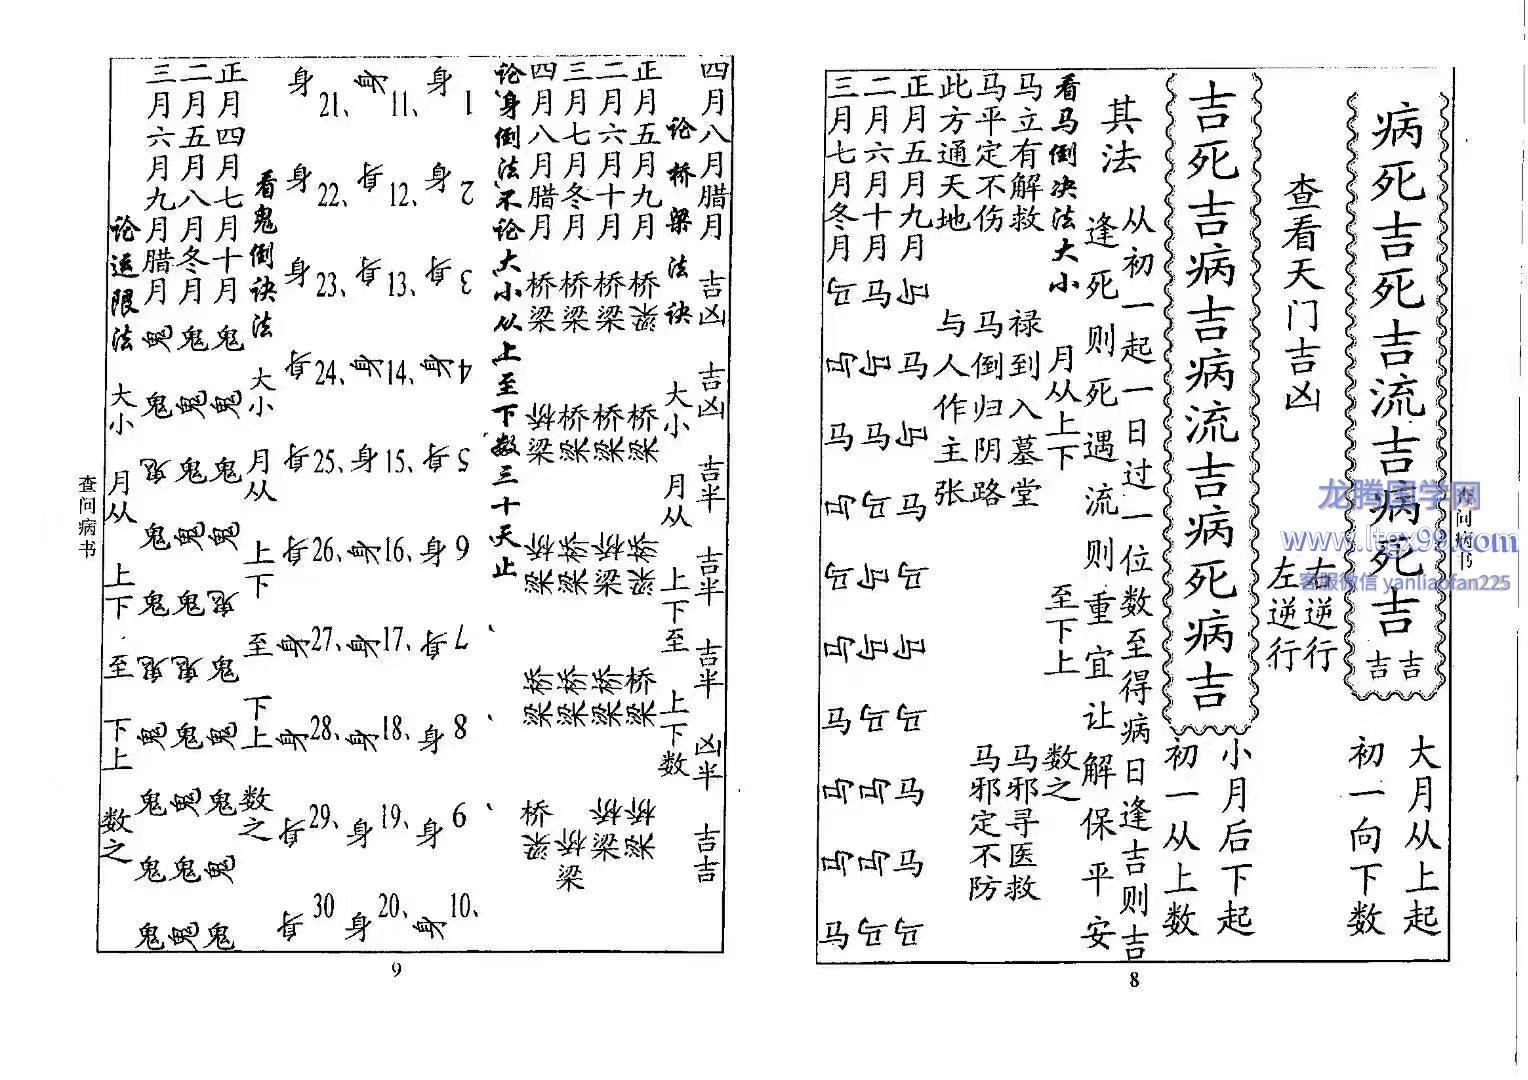 病死吉死吉流吉病死吉
吉吉
大月从上起
初一向下数
查看天门吉凶
右逆行
左逆行
吉死吉病吉病流吉病死病吉
小月后下起
初一从上数
其法
从初一起一日过一位数至得病日逢吉则吉
逢死则死遇流则重宜让解保平安
看马倒决法大小
月从上下
至下上
数之
马立有解救
禄到入墓堂
马邪寻医救
马平定不伤
马倒归阴路
马邪定不防
此方通天地
与人作主张
正月五月九月
马马马马马马马马马马
二月六月十月
马马马马马马马马马马
三月七月冬月
马马马马马马马马马马
8
查问病书
四月八月腊月
吉凶
吉凶
吉半
吉半
吉半
凶半
吉吉
论桥梁法诀
大小
月从
上下至
上下数
正月五月九月
桥梁
桥梁
桥梁
桥梁
桥梁
二月六月十月
桥梁
桥梁
桥梁
桥梁
桥梁
三月七月冬月
桥梁
桥梁
桥梁
桥梁
桥梁
四月八月腊月
桥梁
桥梁
桥梁
桥梁
桥梁
论身倒法不论大小从上至下数三十天止
1
身
2
身
3
身
4
身
5
身
6
身
7
身
8
身
9
身
10、
身
11、
身
12、
身
13、
身
14、
身
15、
身
16、
身
17、
身
18、
身
19、
身
20、
身
21、
身
22、
身
23、
身
24、
身
25、
身
26、
身
27、
身
28、
身
29、
身
30
身
看鬼倒诀法
大小
月从
上下
至
下上
数之
正月四月七月十月
鬼鬼鬼鬼鬼鬼鬼鬼鬼鬼
二月五月八月冬月
鬼鬼鬼鬼鬼鬼鬼鬼鬼鬼
三月六月九月腊月
鬼鬼鬼鬼鬼鬼鬼鬼鬼鬼
论运限法
大小
月从
上下
至
下上
数之
查问病书
9
龙腾国学网
www.ltgx99.com
客服微信 yanliaofan225